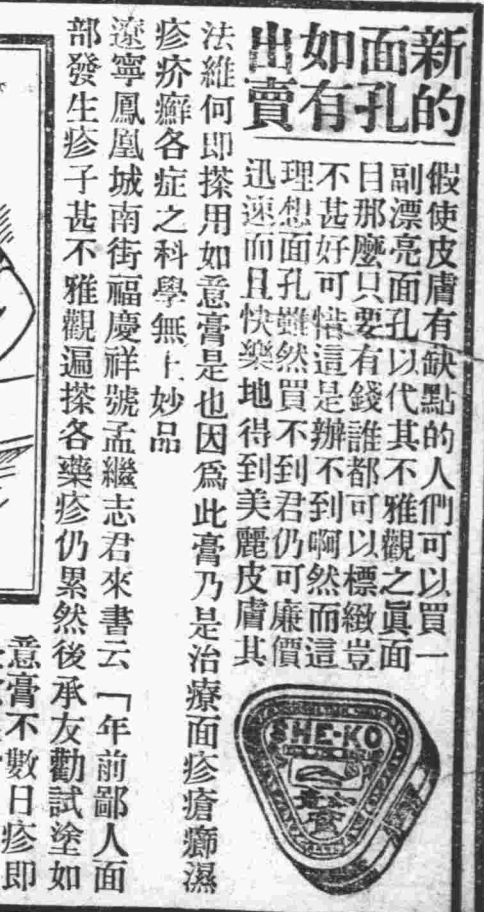 新的
面孔
如有
出賣
假使皮膚有缺點的人們可以買一
副漂亮面孔以代其不雅觀之眞面
目那麼只要有錢誰都可以標緻豈
不甚好可惜這是辦不到啊然而這
理想面孔雖然買不到君仍可廉價
迅速而且快樂地得到美麗皮膚其
法維何即搽用如意膏是也因爲此膏乃是治療面疹瘡癤濕
疹疥癬各症之科學無上妙品
遼寧鳳凰城南街福慶祥號孟繼志君來書云「年前鄙人面
部發生疹子甚不雅觀遍搽各藥疹仍累然後承友勸試塗如
意膏不數日疹即
SHE-KO